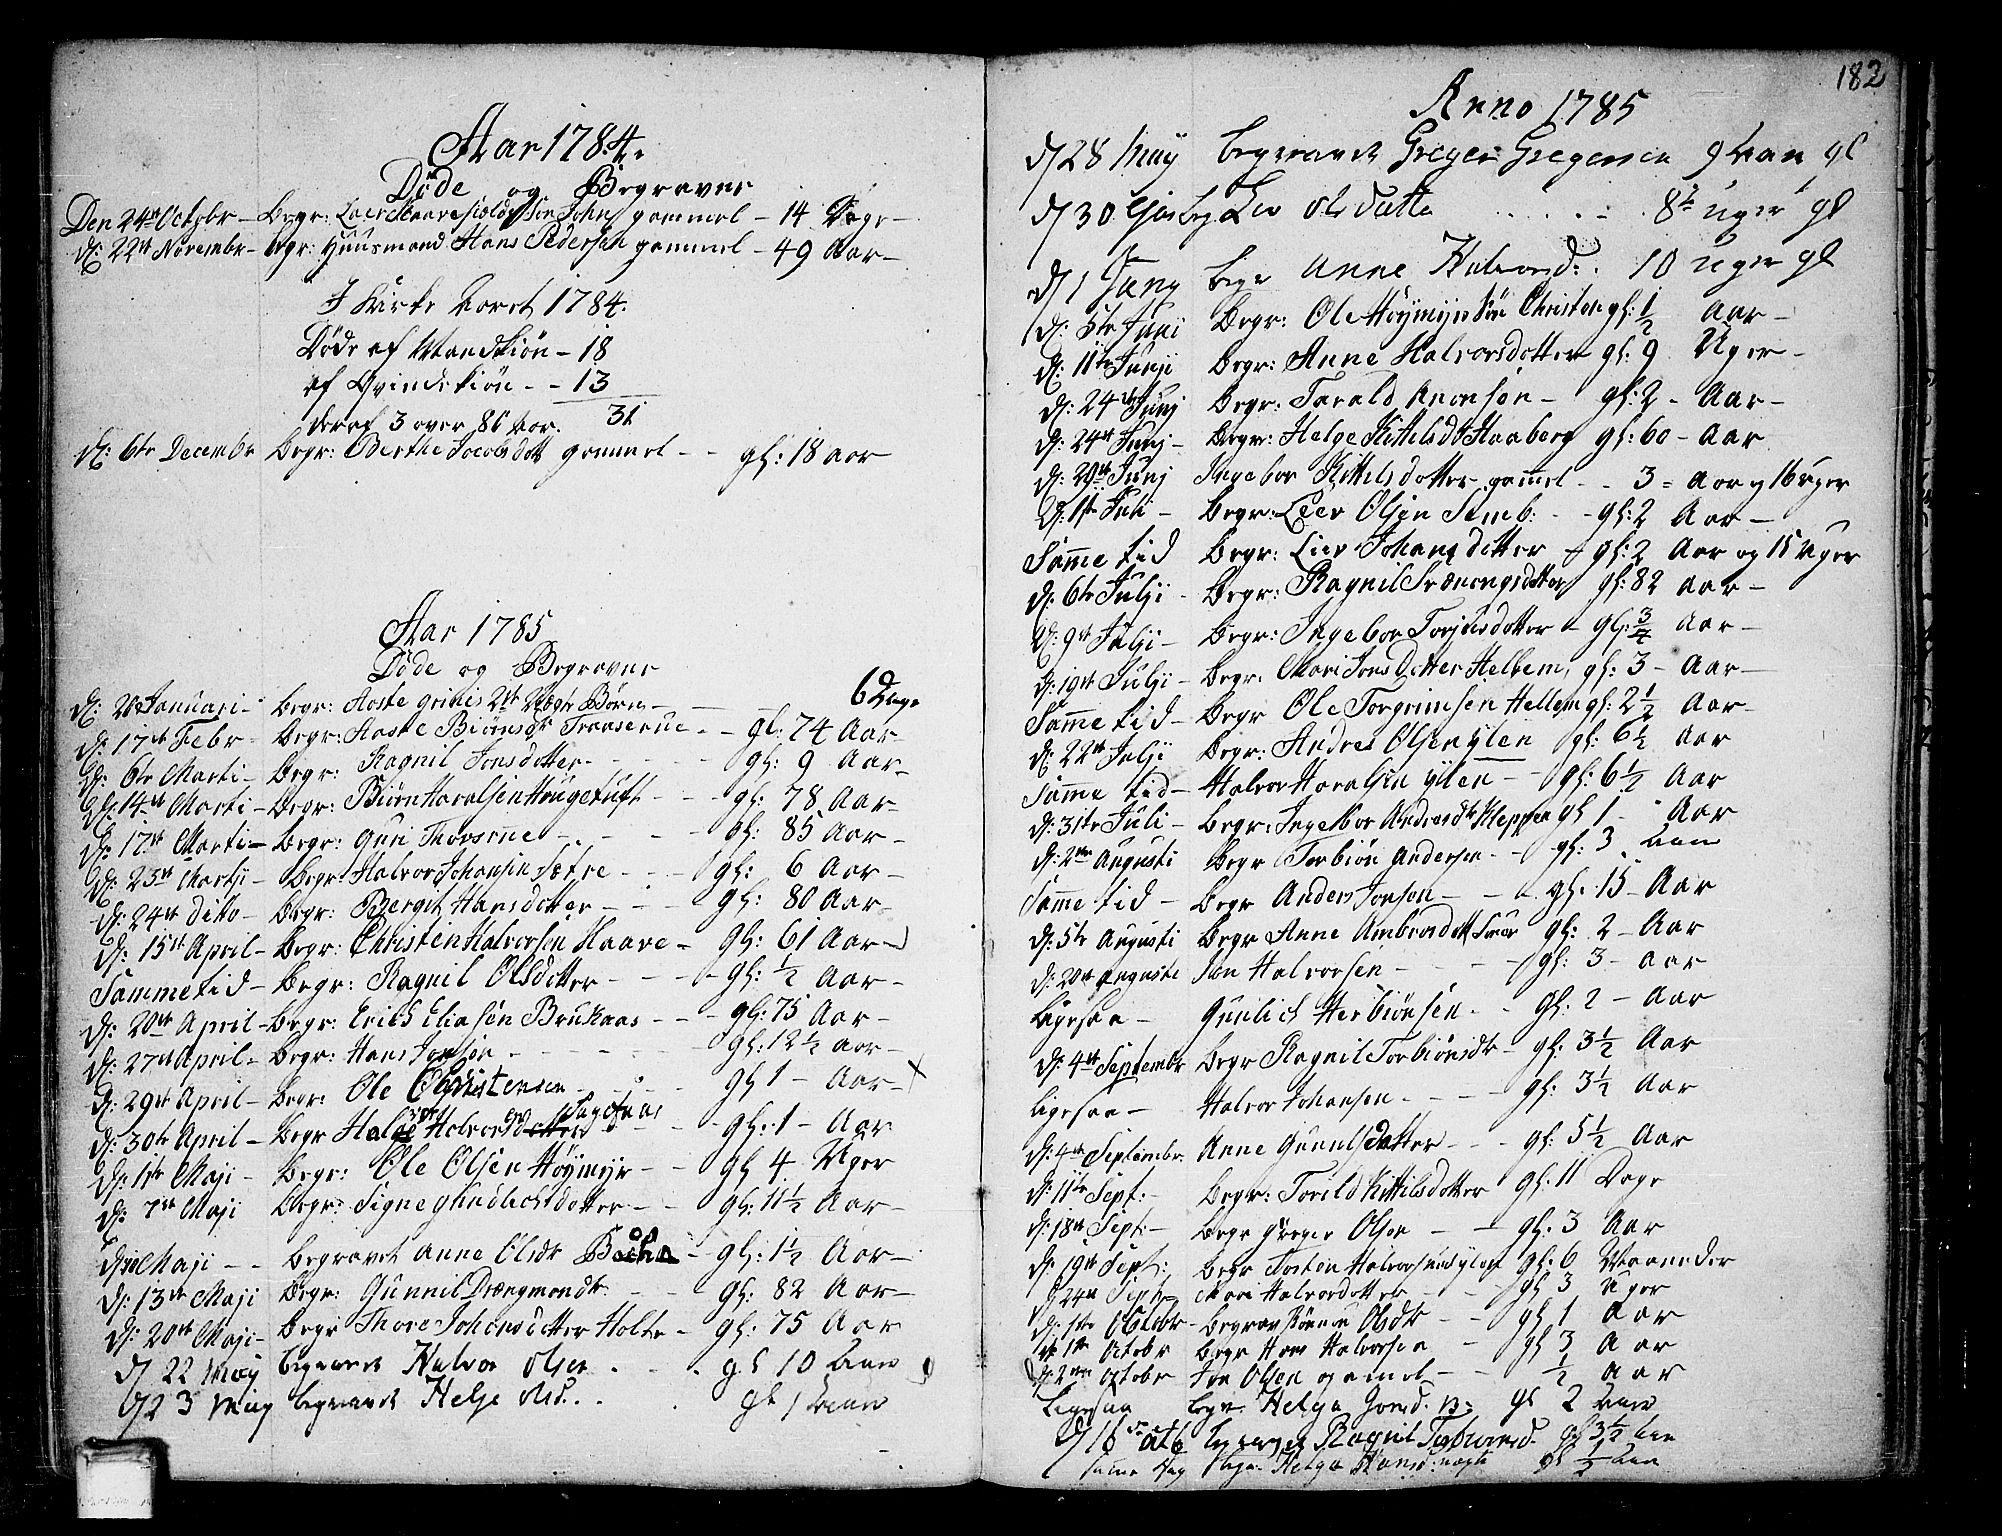 Aar 1784.
Døde og Begraven
Den 24de Octobr - Begr: Søn John gammel - 14 Dage -
d: 22de Novembr - begr: Huusmand Hans Pedersen gammel - 49 Aar -
I Kirke Aaret 1784.
Døde af Mandkiøn - 18
af Qvindekiøn - - 13
deraf 3 over 86 Aar. 31
d: 6te Decembr Begr: Berthe Jacobsdott gammel - - gl: 18 aar
Aar 1785
Døde og Begraven
d: Januari - begr: Aaste Børn - 6 Dage
d: 17de Febr - Begr: Aaste Biørnsdtr - - gl: 74 Aar -
d: 6te Marti - Begr: Ragnil Jonsdotter - - gl: 9 Aar -
d: 14de Marti - Begr: Biørn Haralsen Haugetuft - - gl: 78 Aar -
d: 17de Marti - Begr: Guri - - gl: 85 Aar -
d: 23de Martji - Begr: Halvor Johansen Sætre - - gl: 6 Aar -
d: 24de dito - Begr: Bergit Hansdotter - - gl: 80 Aar -
d: 15de April - Begr: Christen Halvorsen Haave - gl: 61 Aar -
Samme tid - Begr: Ragnil Olsdotter - - gl: ½ Aar -
d: 20de April - Begr: Erich Eliasen Brukaas - - gl: 75 Aar -
d: 27de April - Begr: Hans Jonsen - - gl: 12½ aar -
d: 29de April - Begr: Ole Christensen - - gl 1 - Aar -
d: 30te April - Begr Halvor - gl: 1 - Aar
d: 1ste Maji - Begr: Ole Olsen Høymyr - - gl 4 Uger
d: 7de Maji Begr: Signe Gundlechsdotter - - gl: 11½ Aar -
d: Maji - - begravet Anne Olsdtr - gl: 1½ Aar -
d: 13de Maji Begr: Gunnil - gl: 82 Aar -
d: 20de Maji - Begr Thore Johansdotter Holte - gl: 75 Aar
d 22 May begravet Halvor Olsen . . . gl 10 Aar
d 23 May begravet Helje Olsd. . . gl 1 Aar
182
Anno 1785
d 28 May begravet Greger Gregersen 9 Aar gl
d 30 begr Liv Olsdatter . . . . 8½ uger gl
d 1 Juny begr Anne Halvorsd: 10 uger gl
d: 5te Junii Begr: Ole Høymyrs Søn Christen gl: ½ Aar -
d: 11te Junji Begr: Anne Halvorsdotter gl: 9 Uger -
d: 24de Junj Begr: Tarald Anonsen - gl: 2 - Aar -
d: 24de Junj - Begr: Helge Kittelsdtr Haaberg gl: 60 - Aar
d: 29de Junj Ingebor Kittelsdotter gammel - - 3 = Aar og 16 uger
d: 1ste Juli - Begr: Liev Olsen Semb: - - gl: 2 Aar -
Samme tid Begr: Liev Johansdotter - gl: 2 Aar og 15 Uger
d: 6te Julji - Begr: Ragnil Svænongsdotter gl: 82 aar -
d: 9de Julji - Begr: Ingebor Torjusdotter - gl: ¾ Aar -
d: 19de Julji - Begr: Mari Jonsdotter Hellem, gl: 3 - Aar -
Samme tid - Begr Ole Torgrimsen Hellem gl: 2½ Aar -
d: 22de Julji Begr: Andres Olsen Ylen gl: 6½ Aar
Samme tid - Halvor Haralsen Ylen - - gl: 6½ Aar
d: 31te Juli - Begr: Ingebor Andersdtr Kleppen gl 1 - Aar
d: 2den Augusti Begr Torbiøn Andersen - - gl: 3 Aar
Samme tid - Begr Anders Jonsen - - gl: 15 - Aar
d: 5te Augusti Begr Anne Ambrosdott gl: 2 - Aar
d: 20de Augusti Jon Halvorsen - - gl: 3 - aar
Ligesaa - Gunlich Herbiønsen - - gl: 2 - Aar
d: 4de Septembr Begr Ragnil Torbiønsdtr - gl: 3½ Aar
Ligesaa - Halvor Johansen - - gl: 3½ Aar
d: 4de Septembr Anne Gunulsdatter - - gl: 5½ Aar
d: 11te Sept: - Begr: Torild Kittilsdotter gl: 11 Dage
d: 18de Sept: - Begr Greger Olsen - - gl: 3 Aar
d: 19de Sept: Begr Tosten Halvorsen Ylen gl: 6 Maaneder
d: 24de Septr Mari Halvorsdotter - - gl 3 Uger
d: 1ste Octobr - begrav Olsdtr - gl 1 Aar
d: 1ste Octobr Begr Hans Halvorsen - gl 3 Aar
d: 2den Octobr Jon Olsen gamel - - ½ aar
Ligesaa begr. Helga gl 2 Aar
d 16 begr Ragnil Torbiørnsd. gl 3½ Aar
samme Dag begr Helga gl ½ Aar